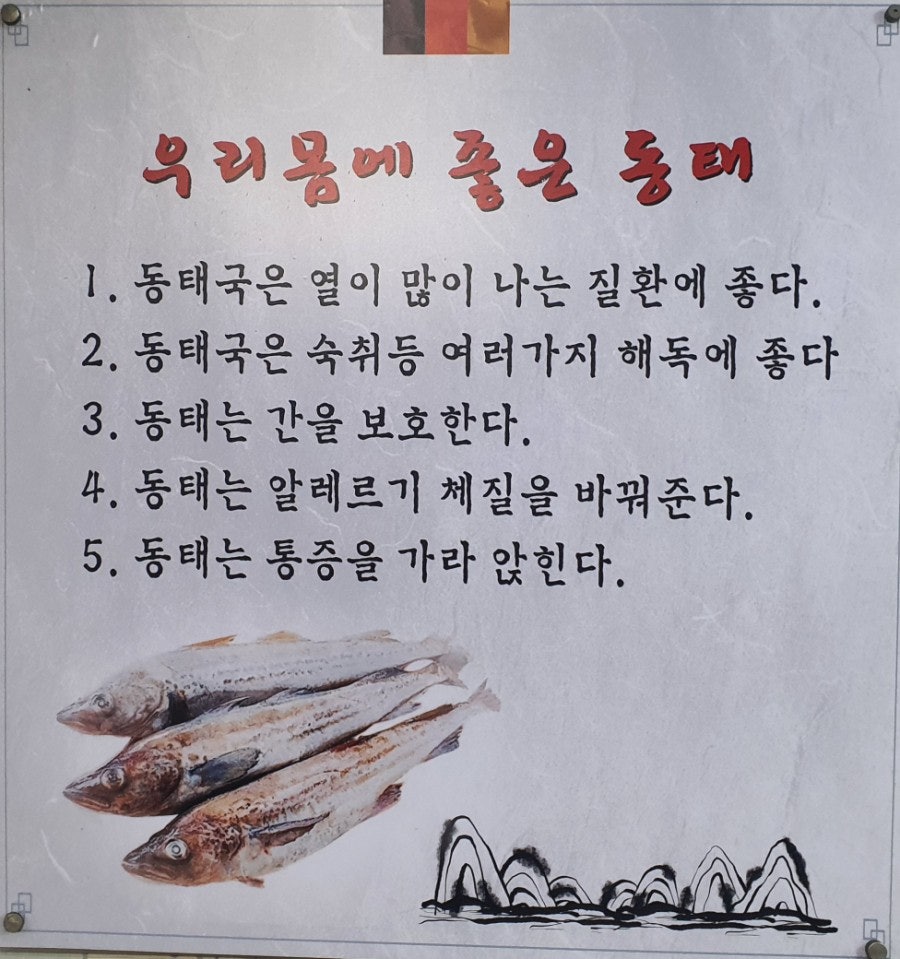 우리몸에 좋은 동태
1. 동태국은 열이 많이 나는 질환에 좋다.
2. 동태국은 숙취등 여러가지 해독에 좋다
3. 동태는 간을 보호한다.
4. 동태는 알레르기 체질을 바꿔준다.
5. 동태는 통증을 가라 앉힌다.